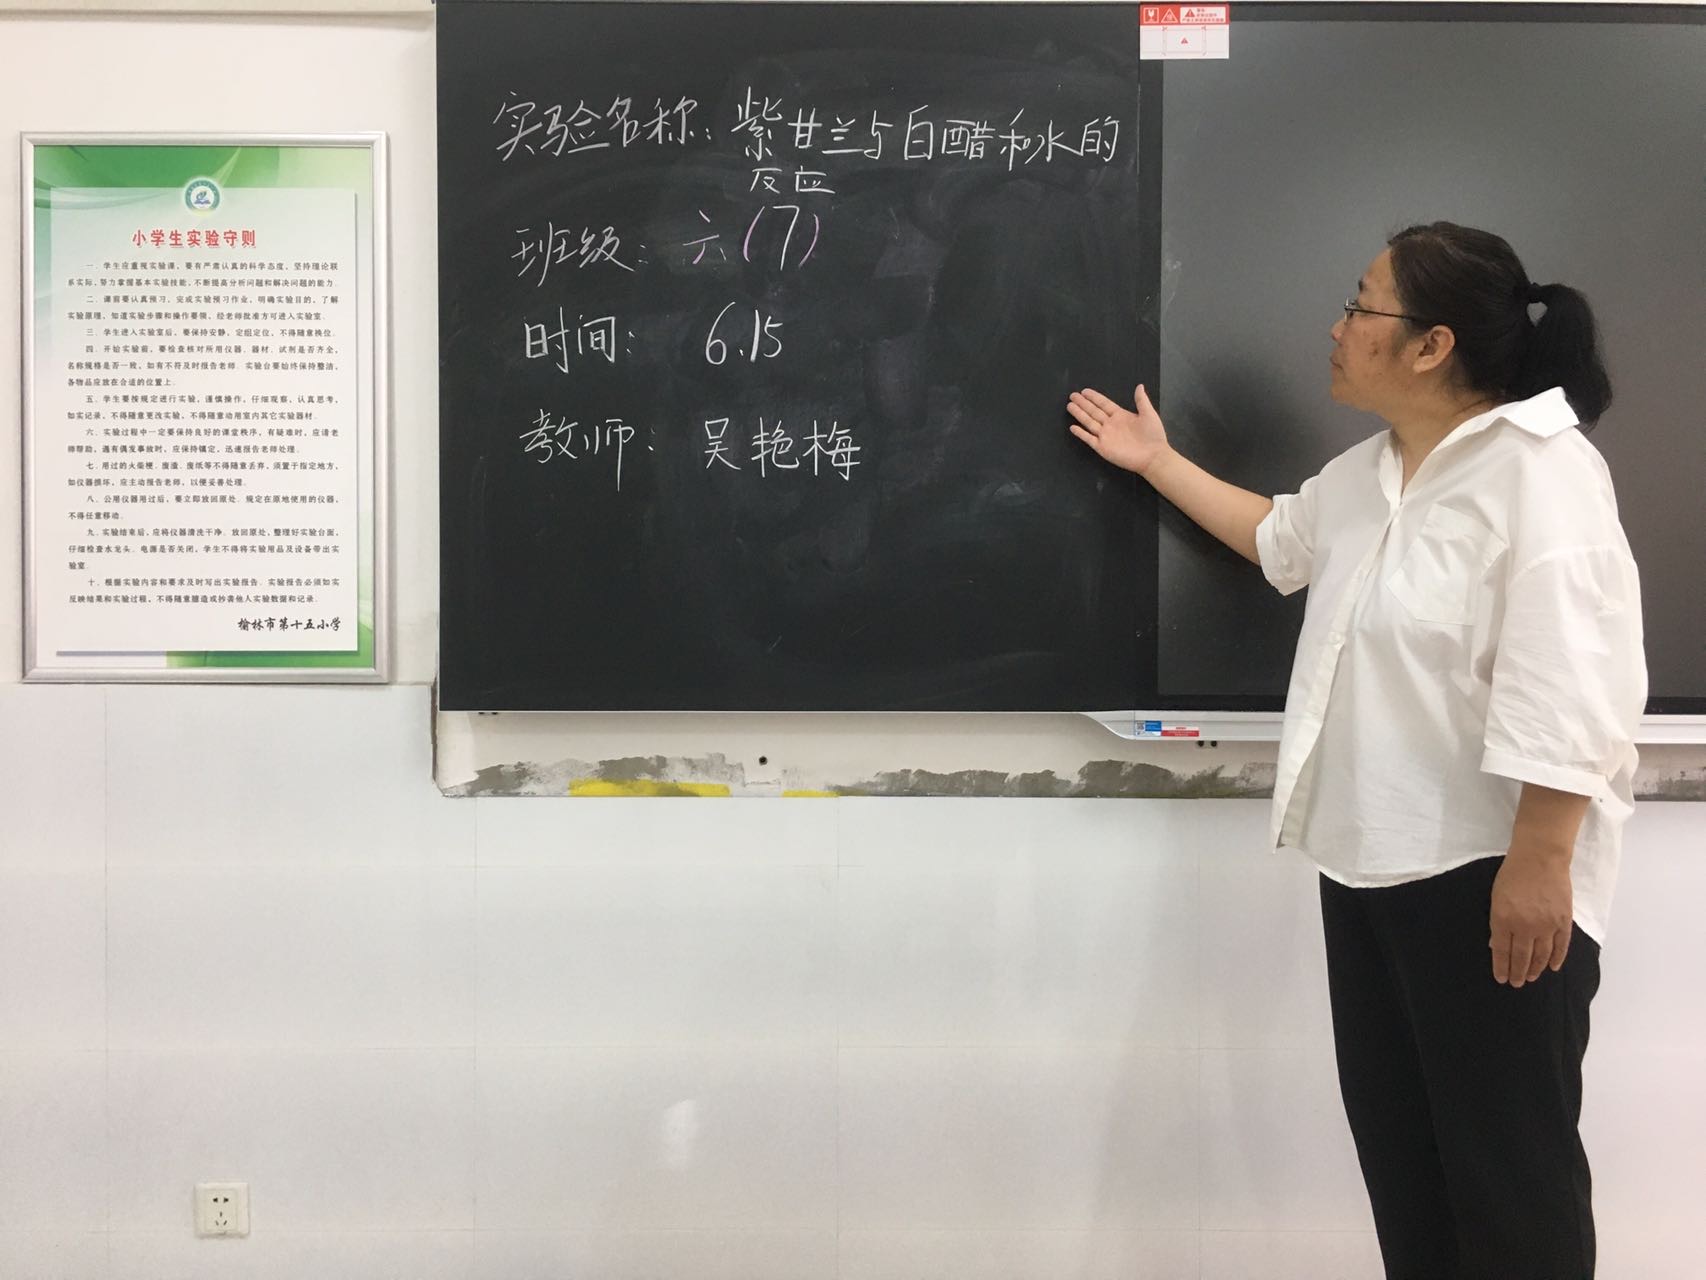 小学生实验守则
一、学生应重视实验课，要有严肃认真的科学态度，坚持理论联
系实际，努力掌握基本实验技能，不断提高分析问题和解决问题的能力。
二、课前要认真预习，完成实验预习作业，明确实验目的，了解
实验原理，知道实验步骤和操作要领，经老师批准方可进入实验室。
三、学生进入实验室后，要保持安静，定组定位，不得随意换位。
四、开始实验前，要检查核对所用仪器、器材、试剂是否齐全，
名称规格是否一致，如有不符及时报告老师。实验台要始终保持整洁，
各物品应放在合适的位置上。
五、学生要按规定进行实验，谨慎操作，仔细观察，认真思考，
如实记录，不得随意更改实验，不得随意动用室内其它实验器材。
六、实验过程中一定要保持良好的课堂秩序，有疑难时，应请老
师帮助，遇有偶发事故时，应保持镇定，迅速报告老师处理。
七、用过的火柴梗、废渣、废纸等不得随意丢弃，须置于指定地方，
如仪器损坏，应主动报告老师，以便妥善处理。
八、公用仪器用过后，要立即放回原处。规定在原地使用的仪器，
不得任意移动。
九、实验结束后，应将仪器清洗干净、放回原处，整理好实验台面，
仔细检查水龙头、电源是否关闭，学生不得将实验用品及设备带出实
验室。
十、根据实验内容和要求及时写出实验报告。实验报告必须如实
反映结果和实验过程，不得随意臆造或抄袭他人实验数据和记录。
榆林市第十五小学
实验名称：紫甘兰与白醋和水的
反应
班级：六(7)
时间：6.15
教师：吴艳梅